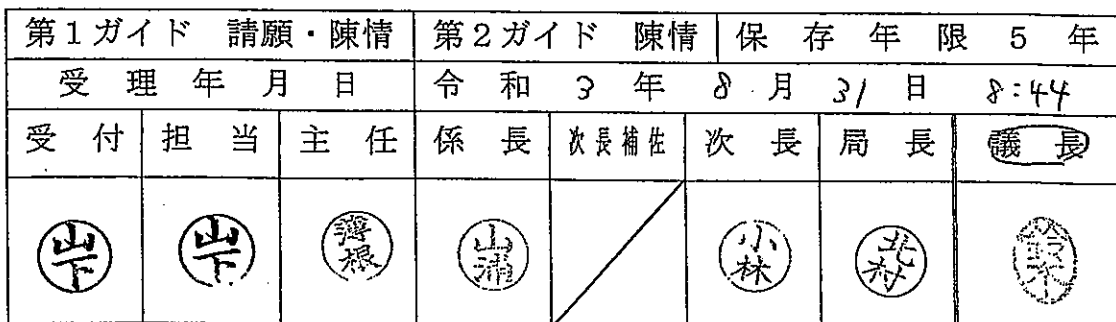 第1ガイド 請願・陳情 第2ガイド 陳情 保存年限 5年
受理年月日 令和3年8月31日 8:44
受付 担当 主任 係長 次長補佐 次長 局長 議長
山下 山下 山浦 小林 北村 鈴木